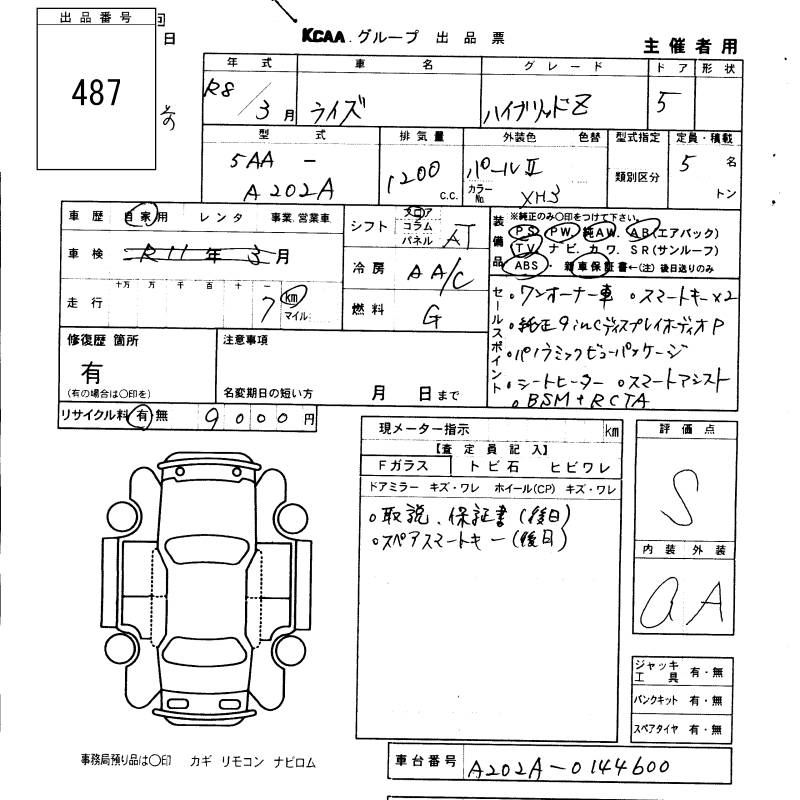 出品番号
487
回
日
KCAA.グループ 出品票
主催者用
年式 車名 グレード ドア 形状
R8/3月 ライズ ハイブリッドZ 5
型式 排気量 外装色 色替 型式指定 定員・積載
5AA - A202A 1200 C.C. パールⅡ カラーNo. XH3 類別区分 5名 トン
車歴 自家用 レンタ 事業.営業車
車検 R11年3月
十万 万 千 百 十 一
走行 7 km マイル
シフト フロア コラム パネル AT
冷房 AA/C
燃料 G
装備品 ※純正のみ〇印をつけて下さい。
PS PW 純AW. AB(エアバック)
TV ナビ.カワ.SR(サンルーフ)
ABS・新車保証書←(注)後日送りのみ
セールスポイント
。ワンオーナー車 。スマートキー×2
。純正9incディスプレイオーディオP
。パノラミックビューパッケージ
。シートヒーター 。スマートアシスト
。BSM+RCTA
修復歴 箇所
有
(有の場合は〇印を)
注意事項
名変期日の短い方 月 日まで
リサイクル料 有 無 9000円
現メーター指示 km
【査定員記入】
Fガラス トビ石 ヒビワレ
ドアミラー キズ・ワレ ホイール(CP) キズ・ワレ
。取説、保証書(後日)
。スペアスマートキー(後日)
評価点
S
内装 外装
a A
ジャッキ工具 有・無
パンクキット 有・無
スペアタイヤ 有・無
事務局預り品は〇印 カギ リモコン ナビロム
車台番号 A202A-0144600